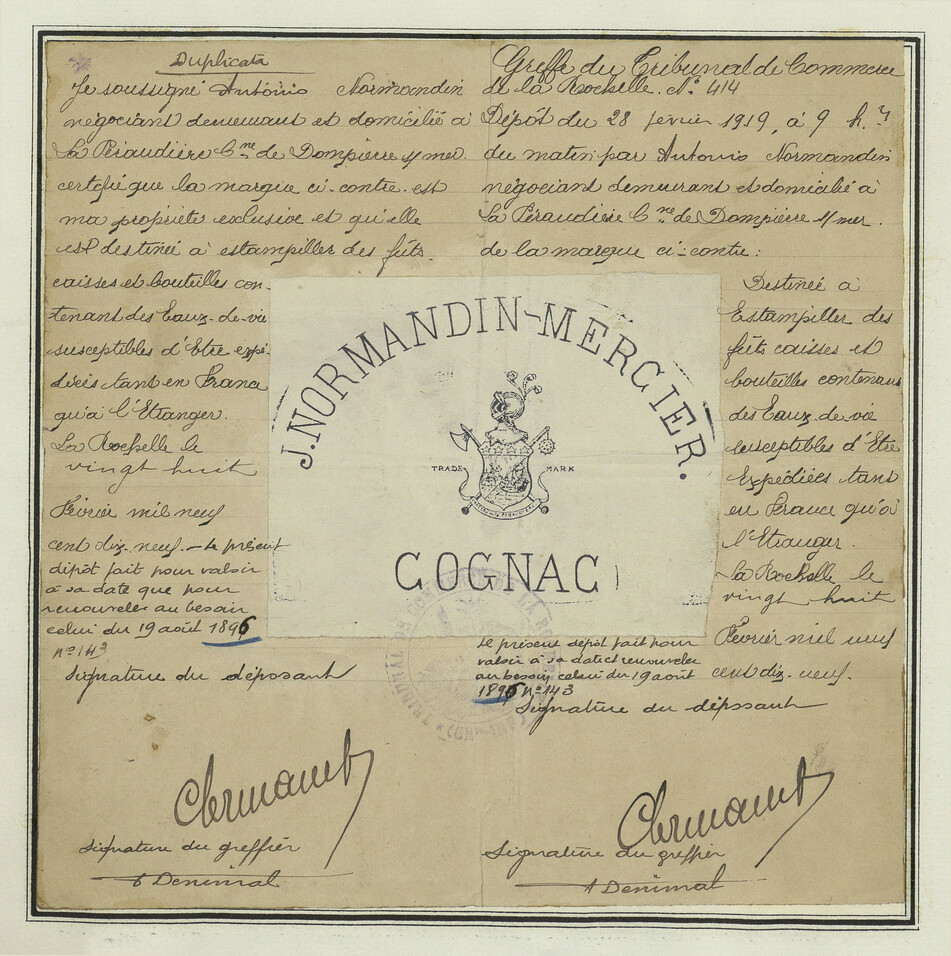 Duplicata
Je soussigné Antonis Normandin
négociant demeurant et domicilié à
La Péraudière Cne de Dompierre s/ mer
certifie que la marque ci-contre est
ma propriété exclusive et qu'elle
est destinée à estampiller des fûts
caisses et bouteilles con-
tenant des Eaux-de-vie
susceptibles d'Etre expé-
diées tant en France
qu'à l'Etranger.
La Rochelle le
vingt huit
Février mil neuf
cent dix-neuf. - Le présent
dépôt fait pour valoir
à sa date que pour
renouveler au besoin
celui du 19 août 1896
nº 143
Signature du déposant
Signature du greffier
Denimal
Greffe du Tribunal de Commerce
de La Rochelle. Nº 414
Dépôt du 28 fevrier 1919, à 9 h.
du matin par Antonis Normandin
négociant demeurant et domicilié à
La Péraudière Cne de Dompierre s/ mer.
de la marque ci-contre:
Destinée à
Estampiller des
fûts caisses et
bouteilles contenant
des Eaux-de-vie
susceptibles d'Etre
Expédiées tant
en France qu'à
l'Etranger.
La Rochelle le
vingt huit
Février mil neuf
cent dix-neuf.
Le présent dépôt fait pour
valoir à sa date et renouveler
au besoin celui du 19 août
1896 nº 143
Signature du dépssant
Signature du greffier
Denimal
J. NORMANDIN-MERCIER.
TRADE MARK
COGNAC